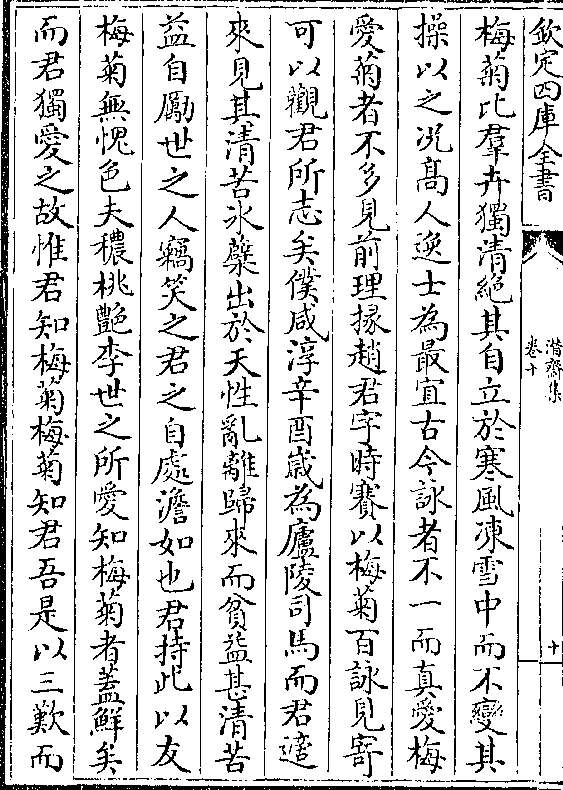 欽定四庫全書
潛齋集
卷十
十
梅菊比羣卉獨清絶其自立於寒風凍雪中而不變其
操以之况髙人逸士為最宜古今詠者不一而真愛梅
愛菊者不多見前理掾趙君字時賽以梅菊百詠見寄
可以觀君所志矣僕咸淳辛酉歳為廬陵司馬而君適
來見其清苦氷蘗出於天性亂離歸來而貧益甚清苦
益自勵世之人竊笑之君之自處澹如也君持此以友
梅菊無愧色夫穠桃艶李世之所愛知梅菊者蓋鮮矣
而君獨愛之故惟君知梅菊梅菊知君吾是以三歎而